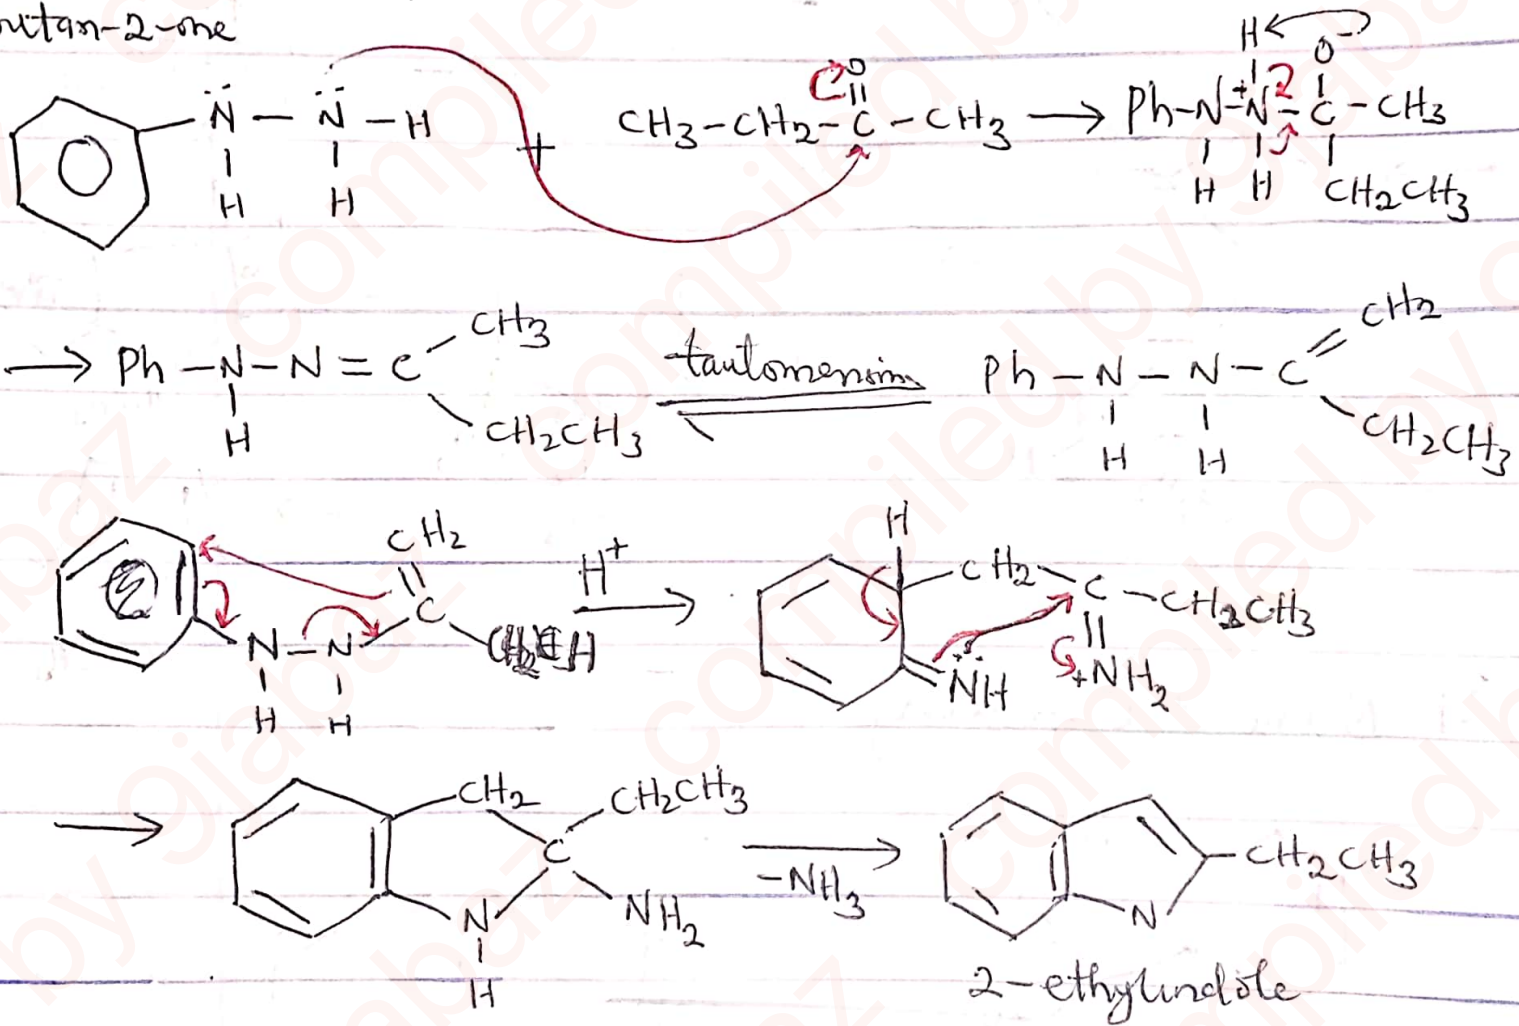 utan-2-one
N̈ — N̈ — H + CH3-CH2-C-CH3 → Ph-N-N-C-CH3
O H O-
H H H H CH2CH3
→ Ph-N-N=C CH3 CH2CH3 tautomerism Ph-N-N-C CH2 CH2CH3
H H H
CH2 C N-N H H H+ → H CH2 C CH2CH3 NH +NH2
→ CH2 CH2CH3 C N NH2 H -NH3 → CH2CH3 N
2-ethylindole
compiled by 9jabaz